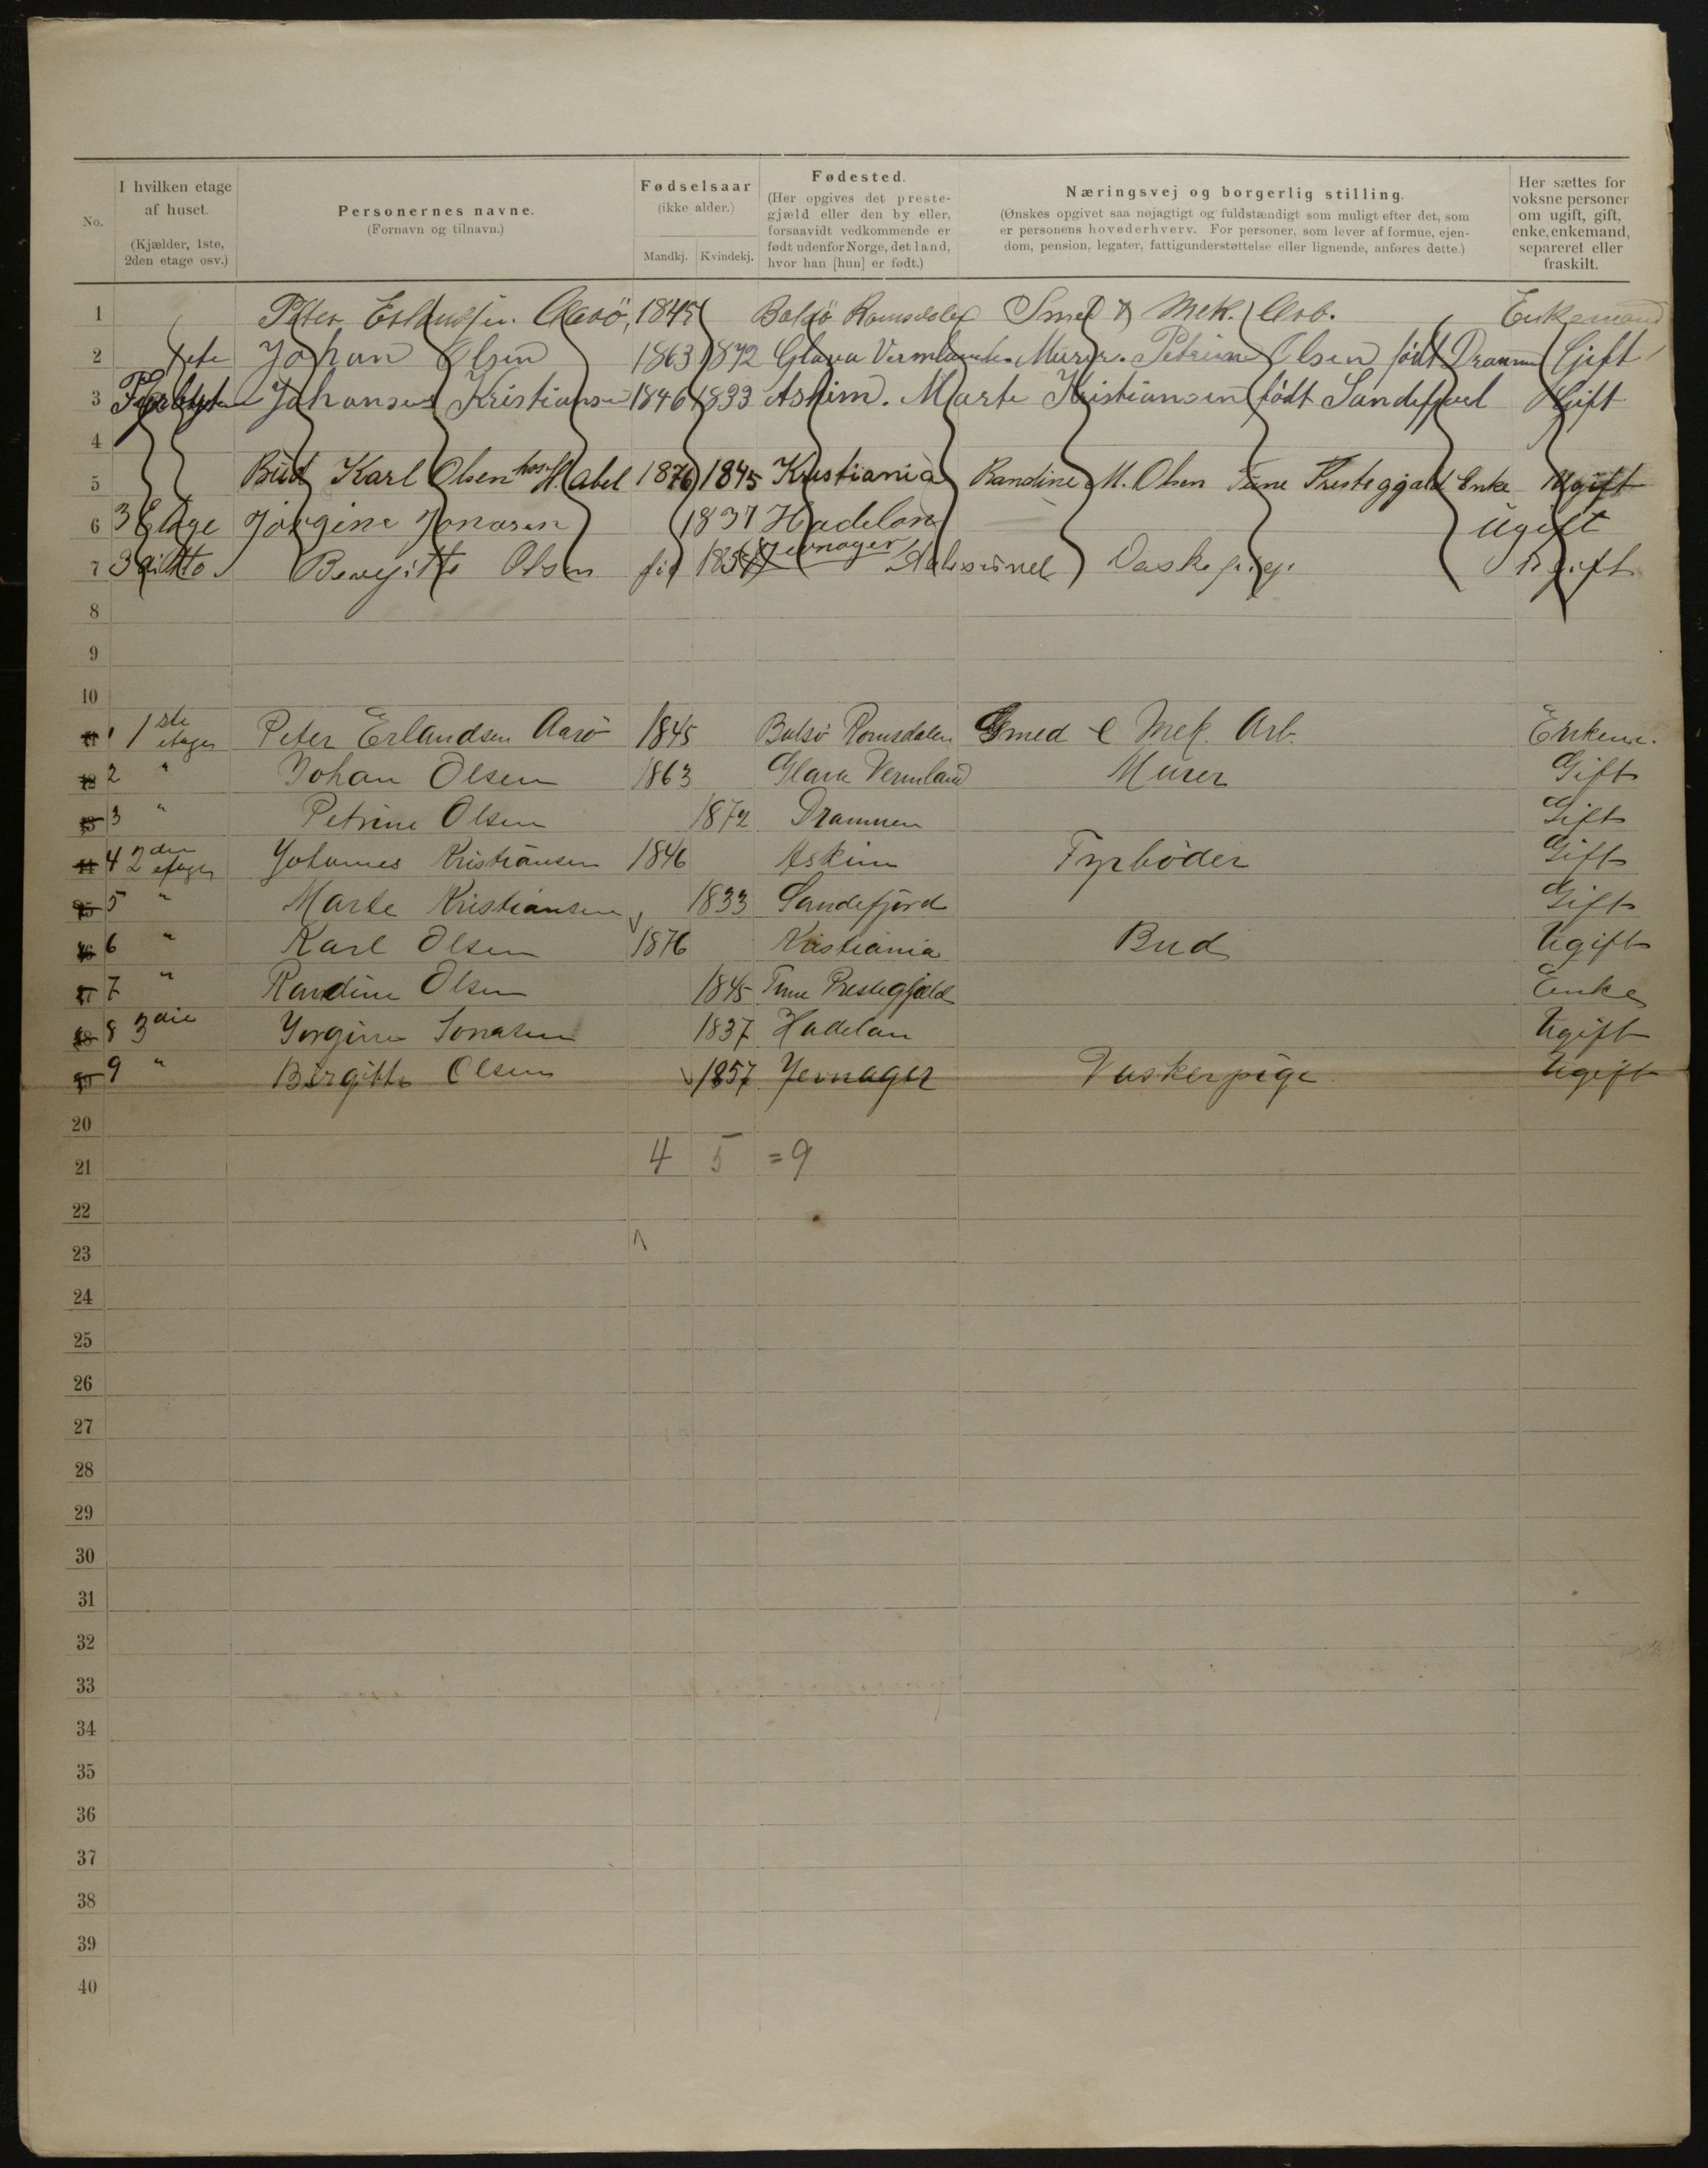 No.
I hvilken etage
af huset.
(Kjælder, 1ste,
2den etage osv.)
Personernes navne.
(Fornavn og tilnavn.)
Fødselsaar
(ikke alder.)
Mandkj. Kvindekj.
Fødested.
(Her opgives det preste-
gjæld eller den by eller,
forsaavidt vedkommende er
født udenfor Norge, det land,
hvor han [hun] er født.)
Næringsvej og borgerlig stilling.
(Ønskes opgivet saa nøjagtigt og fuldstændigt som muligt efter det, som
er personens hovederhverv. For personer, som lever af formue, ejen-
dom, pension, legater, fattigunderstøttelse eller lignende, anføres dette.)
Her sættes for
voksne personer
om ugift, gift,
enke, enkemand,
separeret eller
fraskilt.
1 Peter Aasö, 1845 Bolsö Romsdalen Smed & Mek. Arb. Enkemand
2 Johan Olsen 1863 1872 Glava Murer. Petrine Olsen født Drammen Gift
3 Johanses Kristiansen 1846 1833 Askim. Marte Kristiansen født Gift
4
5 Bud Karl Olsen hos H. Abel 1876 1845 Kristiania Randine M. Olsen Tune Enke Ugift
6 3 Etage Jørgine Jonasen 1837 Hadelan Ugift
7 3 ditto Olsen Jevnager Ugift
8
9
10
1 1ste etage Peter Erlandsen Aasö 1845 Bolsö Romsdalen Smed & Mek. Arb. Enkem.
2 " Johan Olsen 1863 Glava Vermland Murer Gift
3 " Petrine Olsen 1872 Drammen Gift
4 2den etage Johannes Kristiansen 1846 Askim Fyrbøder Gift
5 " Marte Kristiansen 1833 Sandefjord Gift
6 " Karl Olsen 1876 Kristiania Bud Ugift
7 " Randine Olsen 1845 Tune Prestegjæld Enke
8 3die Jørgine Jonasen 1837 Hadelan Ugift
9 " Birgitte Olsen 1857 Jevnager Vaskerpige Ugift
20
21 4 5 = 9
22
23
24
25
26
27
28
29
30
31
32
33
34
35
36
37
38
39
40